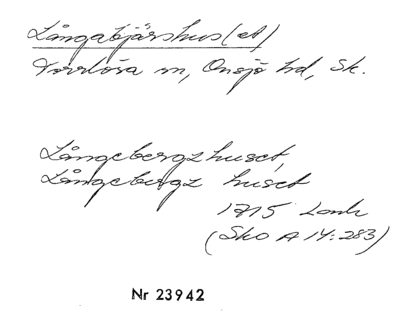 Långabjärshus(et)
Torrlösa sn, Onsjö hd, Sk.
Långebergzhuset,
Långebergz huset
1715 Lantr
(Sko A 14:283)
Nr 23942